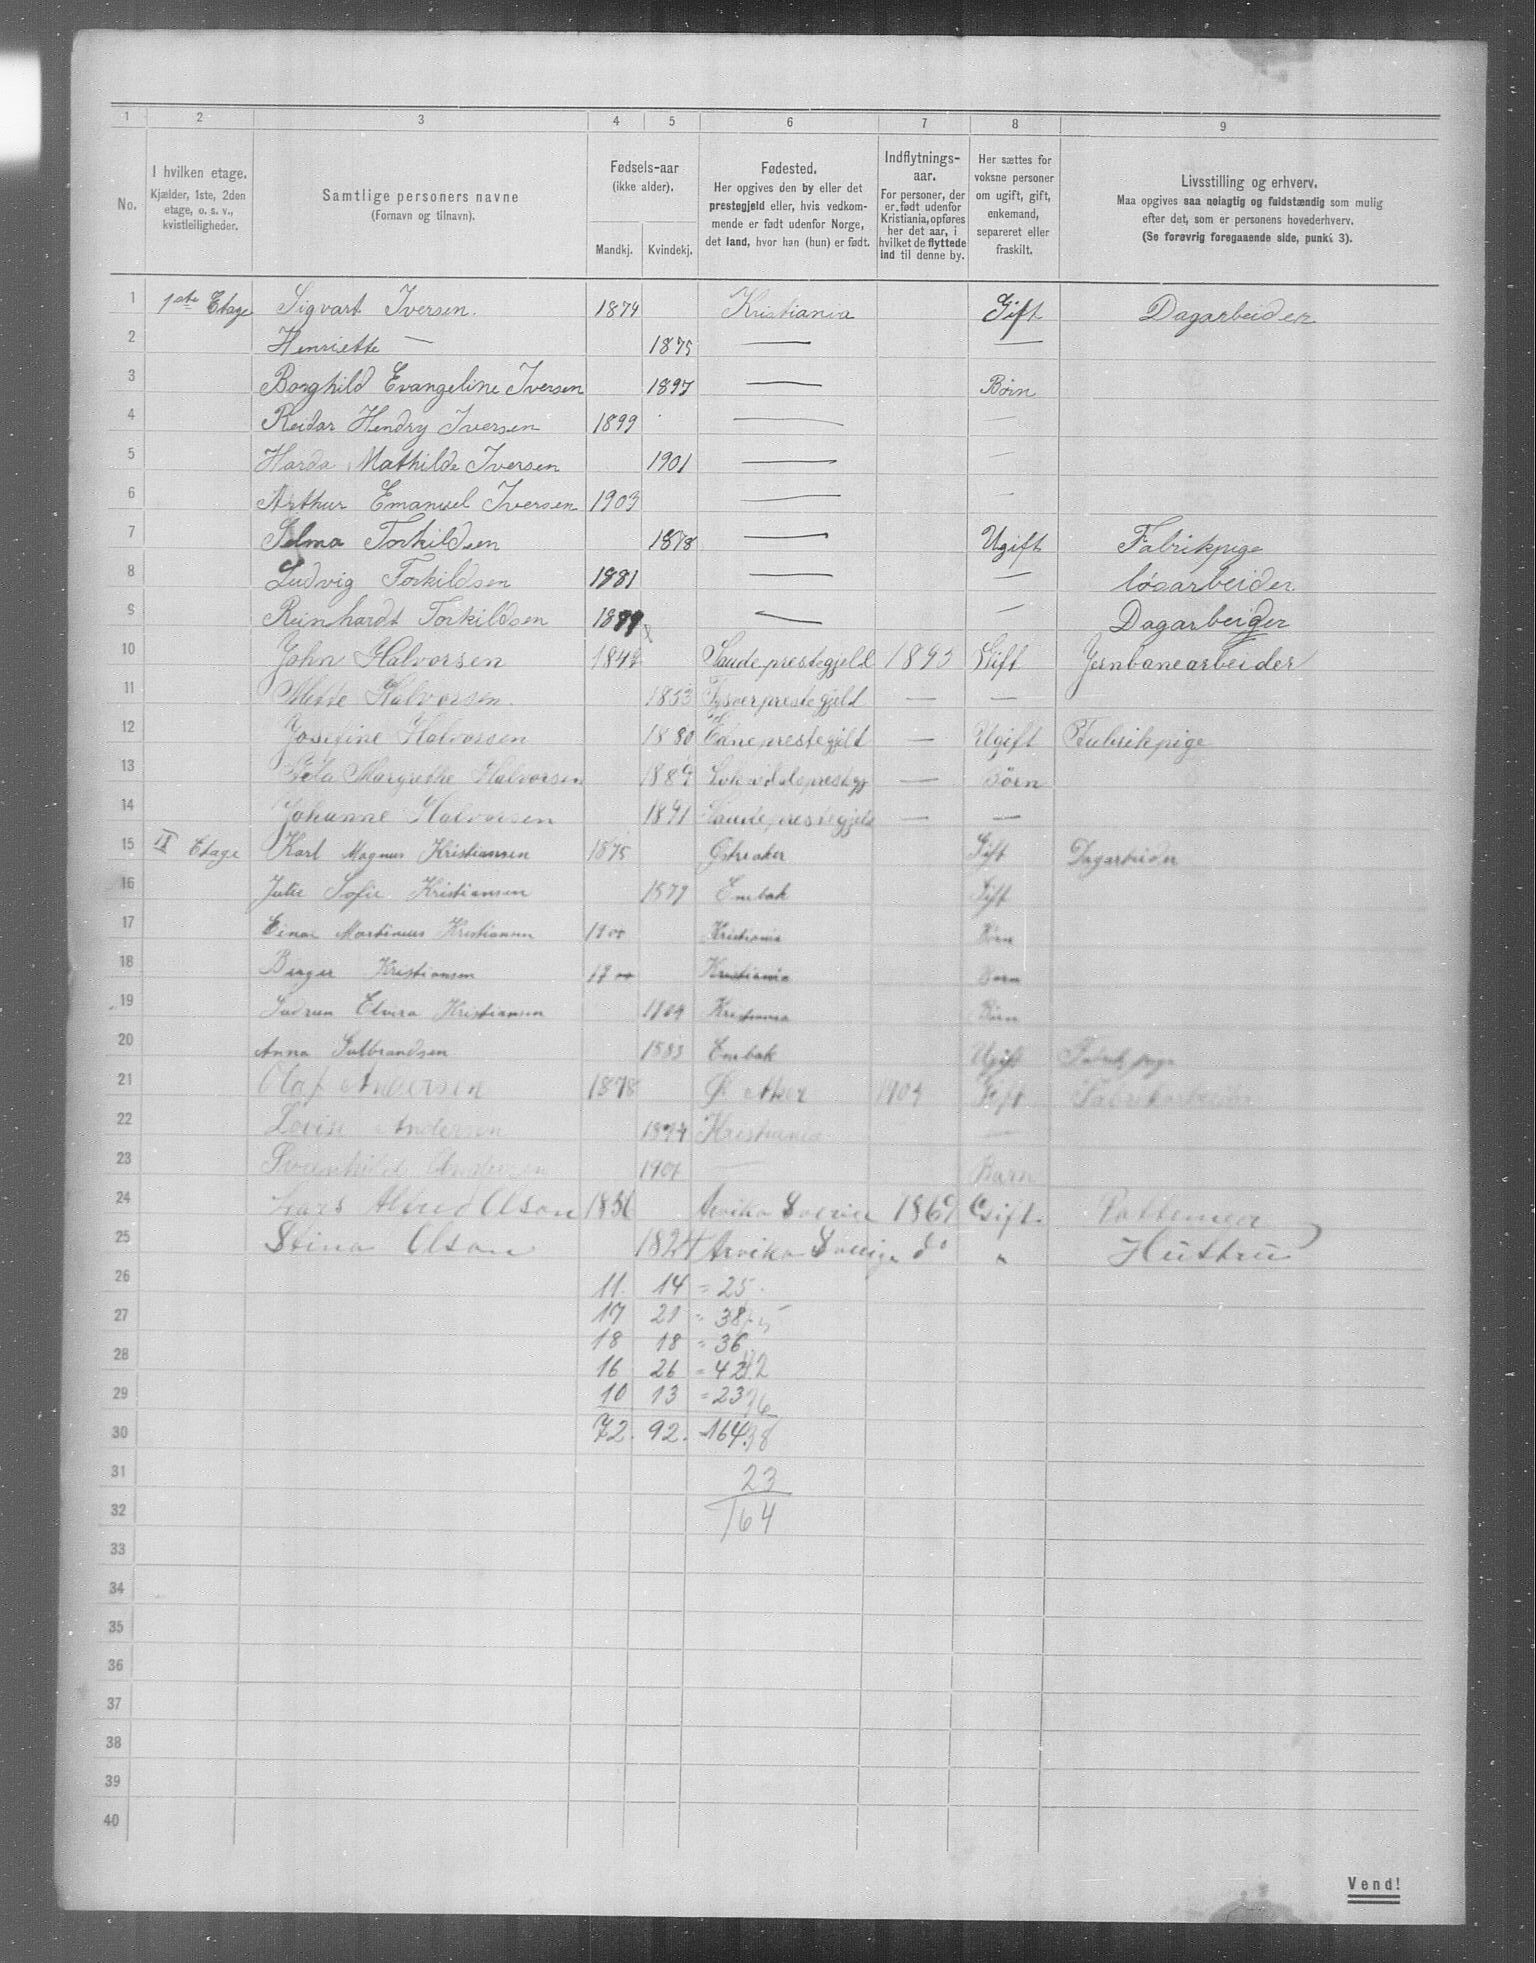 1 2 3 4 5 6 7 8 9
No.
I hvilken etage.
Kjælder, 1ste, 2den
etage, o. s. v.,
kvistleiligheder.
Samtlige personers navne
(Fornavn og tilnavn).
Fødsels-aar
(ikke alder).
Mandkj. Kvindekj.
Fødested.
Her opgives den by eller det
prestegjeld eller, hvis vedkom-
mende er født udenfor Norge,
det land, hvor han (hun) er født.
Indflytnings-
aar.
For personer, der
er født udenfor
Kristiania, opføres
her det aar, i
hvilket de flyttede
ind til denne by.
Her sættes for
voksne personer
om ugift, gift,
enkemand,
separeret eller
fraskilt.
Livsstilling og erhverv.
Maa opgives saa nøiagtig og fuldstændig som mulig
efter det, som er personens hovederhverv.
(Se forøvrig foregaaende side, punkt 3).
1 1ste Etage Sigvart Iversen. 1874 Kristiania Gift Dagarbeider
2 Henriette — 1875 — —
3 Borghild Evangeline Iversen 1897 — Børn
4 Reidar Hendry Iversen 1899 — —
5 Harda Mathilde Iversen 1901 — —
6 Arthur Emanuel Iversen 1903 — —
7 Selma Torkildsen 1878 — Ugift Fabrikpige
8 Ludvig Torkildsen 1881 — — løsarbeider
9 Reinhardt Torkildsen — — Dagarbeider
10 John Halvorsen Saude prestegjeld 1895 Gift Jernbanearbeider
11 Mette Halvorsen. 1853 prestegjeld — —
12 Josefine Halvorsen 1880 prestegjelt — Ugift Fabrikpige
13 Margrethe Halvorsen 1889 — Børn
14 Johanne Halvorsen 1891 Saude prestegjeld — —
15 II Etage Karl Magnus Kristiansen 1875 Østreaker Gift Dagarbeider
16 Julie Sofie Kristiansen 1877 Enebak Gift
17 Einar Martinius Kristiansen 1900 Kristiania Børn
18 Birger Kristiansen Kristiania Børn
19 Gudrun Elvira Kristiansen 1904 Kristiania Børn
20 Anna Gulbrandsen 1883 Enebak Ugift Fabrik pige
21 Olaf Andersen 1878 Ø Aker 1904 Gift Fabrikarbeider
22 Lovise Andersen 1874 Kristiania —
23 Svanhild Andersen 1904 — Barn
24 Lars Alfred Olson Arvika Sverige 1869 Gift. Pottemager
25 Stina Olson 1824 Arvika Sverige do " Hustru
26 11 14 = 25
27 17 21 = 38
18 18 = 36
28 16 26 = 42
29 10 13 = 23
30 72. 92. 164
31 23
32 164
33
34
35
36
37
38
39
40
Vend!